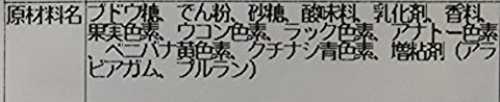 原材料名 ブドウ糖、でん粉、砂糖、酸味料、乳化剤、香料、
果実色素、ウコン色素、ラック色素、アナトー色素
、ベニバナ黄色素、クチナシ青色素、増粘剤（アラ
ビアガム、プルラン）